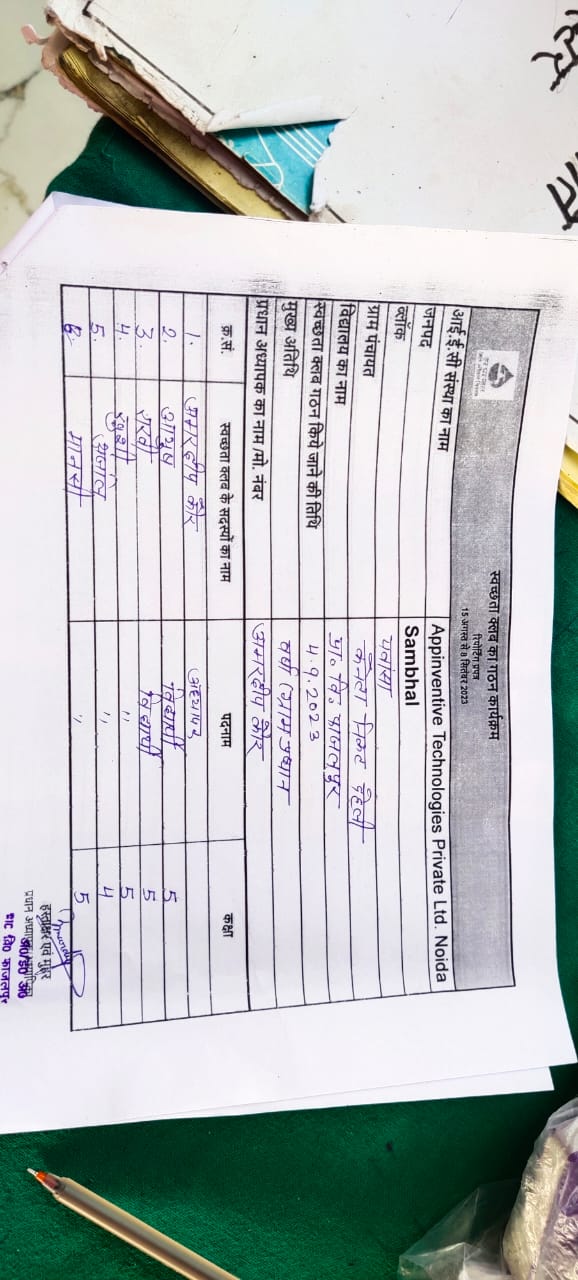 स्वच्छता क्लब का गठन कार्यक्रम
रिपोर्टिंग प्रपत्र
15 अगस्त से 8 सितंबर 2023
आई.ई.सी संस्था का नाम Appinventive Technologies Private Ltd. Noida
जनपद Sambhal
ब्लॉक पवांसा
ग्राम पंचायत
विद्यालय का नाम प्रा० वि० फाजलपुर
स्वच्छता क्लब गठन किये जाने की तिथि 4.9.2023
मुख्य अतिथि वर्षा (ग्राम प्रधान
प्रधान अध्यापक का नाम /मो. नंबर अमरदीप कौर
क्र.सं. स्वच्छता क्लब के सदस्यों का नाम पदनाम कक्षा
1. अमरदीप कौर अध्यापक
2. आयुष विद्यार्थी 5
3. विद्यार्थी 5
4. खुशी " 5
5. " 4
6. मानसी " 5
हस्ताक्षर एवं मुहर
प्रा० वि० फाजलपुर